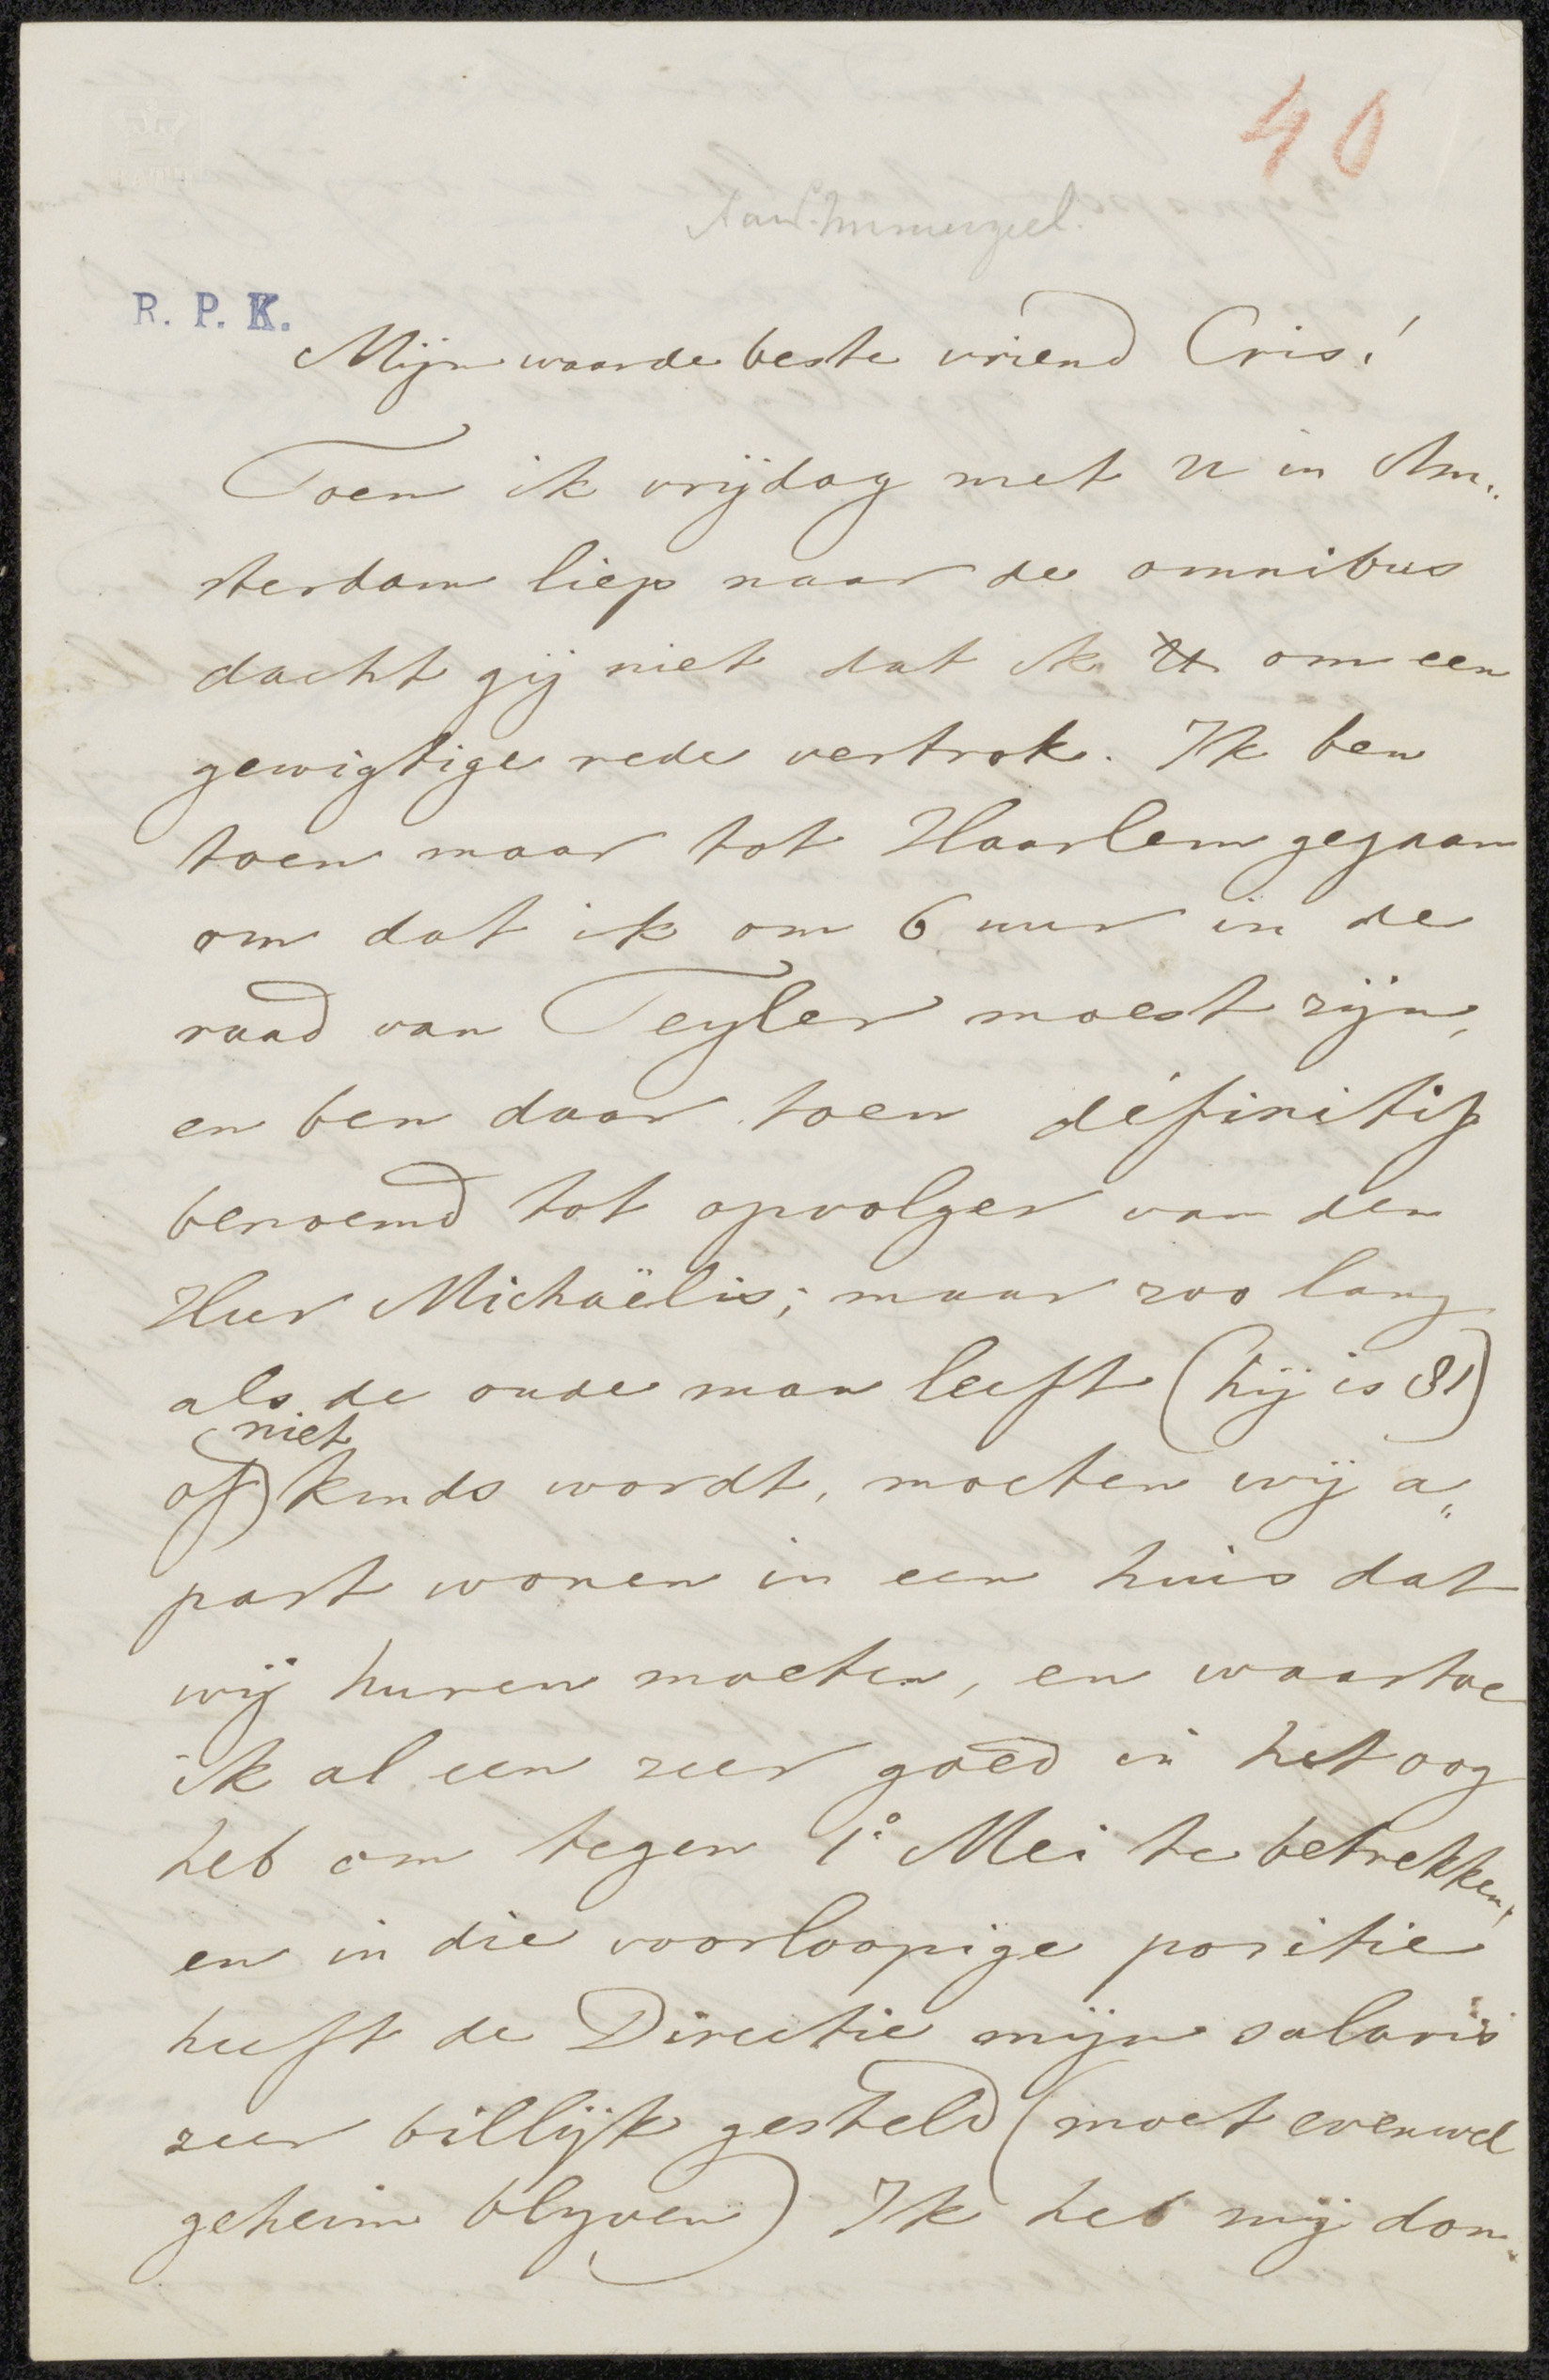 40
Aan Immerzeel.
R. P. K.
Mijn waarde beste vriend Cris!
Toen ik vrijdag met U in Am„
sterdam liep naar de omnibus
dacht gij niet dat ik U om een
gewigtige rede vertrok. Ik ben
toen maar tot Haarlem gegaan
om dat ik om 6 uur in de
raad van Teyler moest zijn,
en ben daar toen définitif
benoemd tot opvolger van den
Heer Michaëlis; maar zoo lang
als de oude man leeft (hij is 81)
niet
of kinds wordt, moeten wij a„
part wonen in een huis dat
wij huren moeten, en waartoe
ik al een zeer goed in het oog
heb om tegen 1° Mei te betrekken,
en in die voorloopige positie
heeft de Directie mijn salaris
zeer billijk gesteld (moet evenwel
geheim blyven) Ik heb mij don„